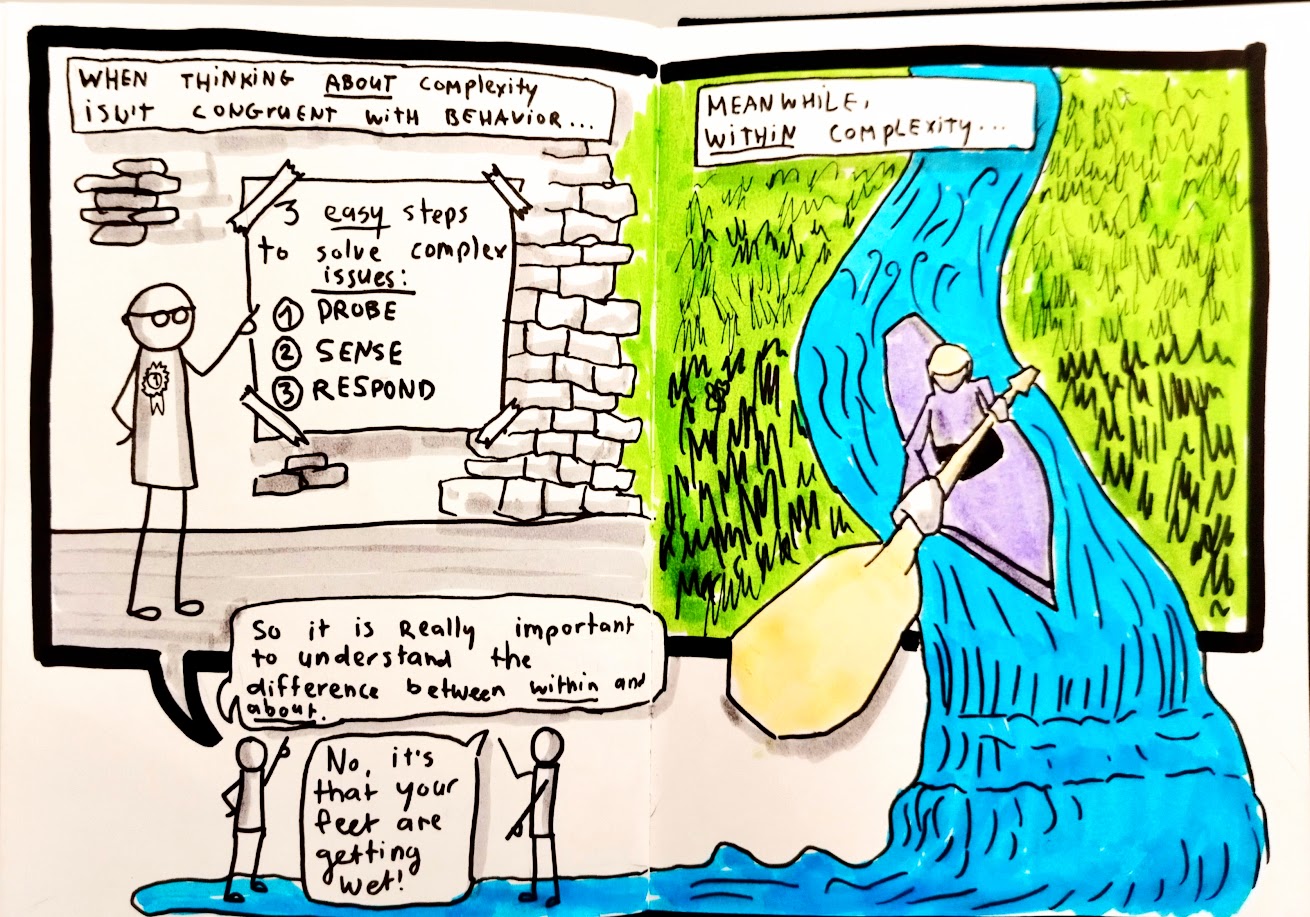 WHEN THINKING ABOUT Complexity
ISN'T CONGRUENT WITH BEHAVIOR...
3 easy steps
to solve complex
issues:
1 PROBE
2 SENSE
3 RESPOND
1
MEANWHILE,
WITHIN COMPLEXITY...
So it is Really important
to understand the
difference between within and
about.
No, it's
that your
feet are
getting
wet!